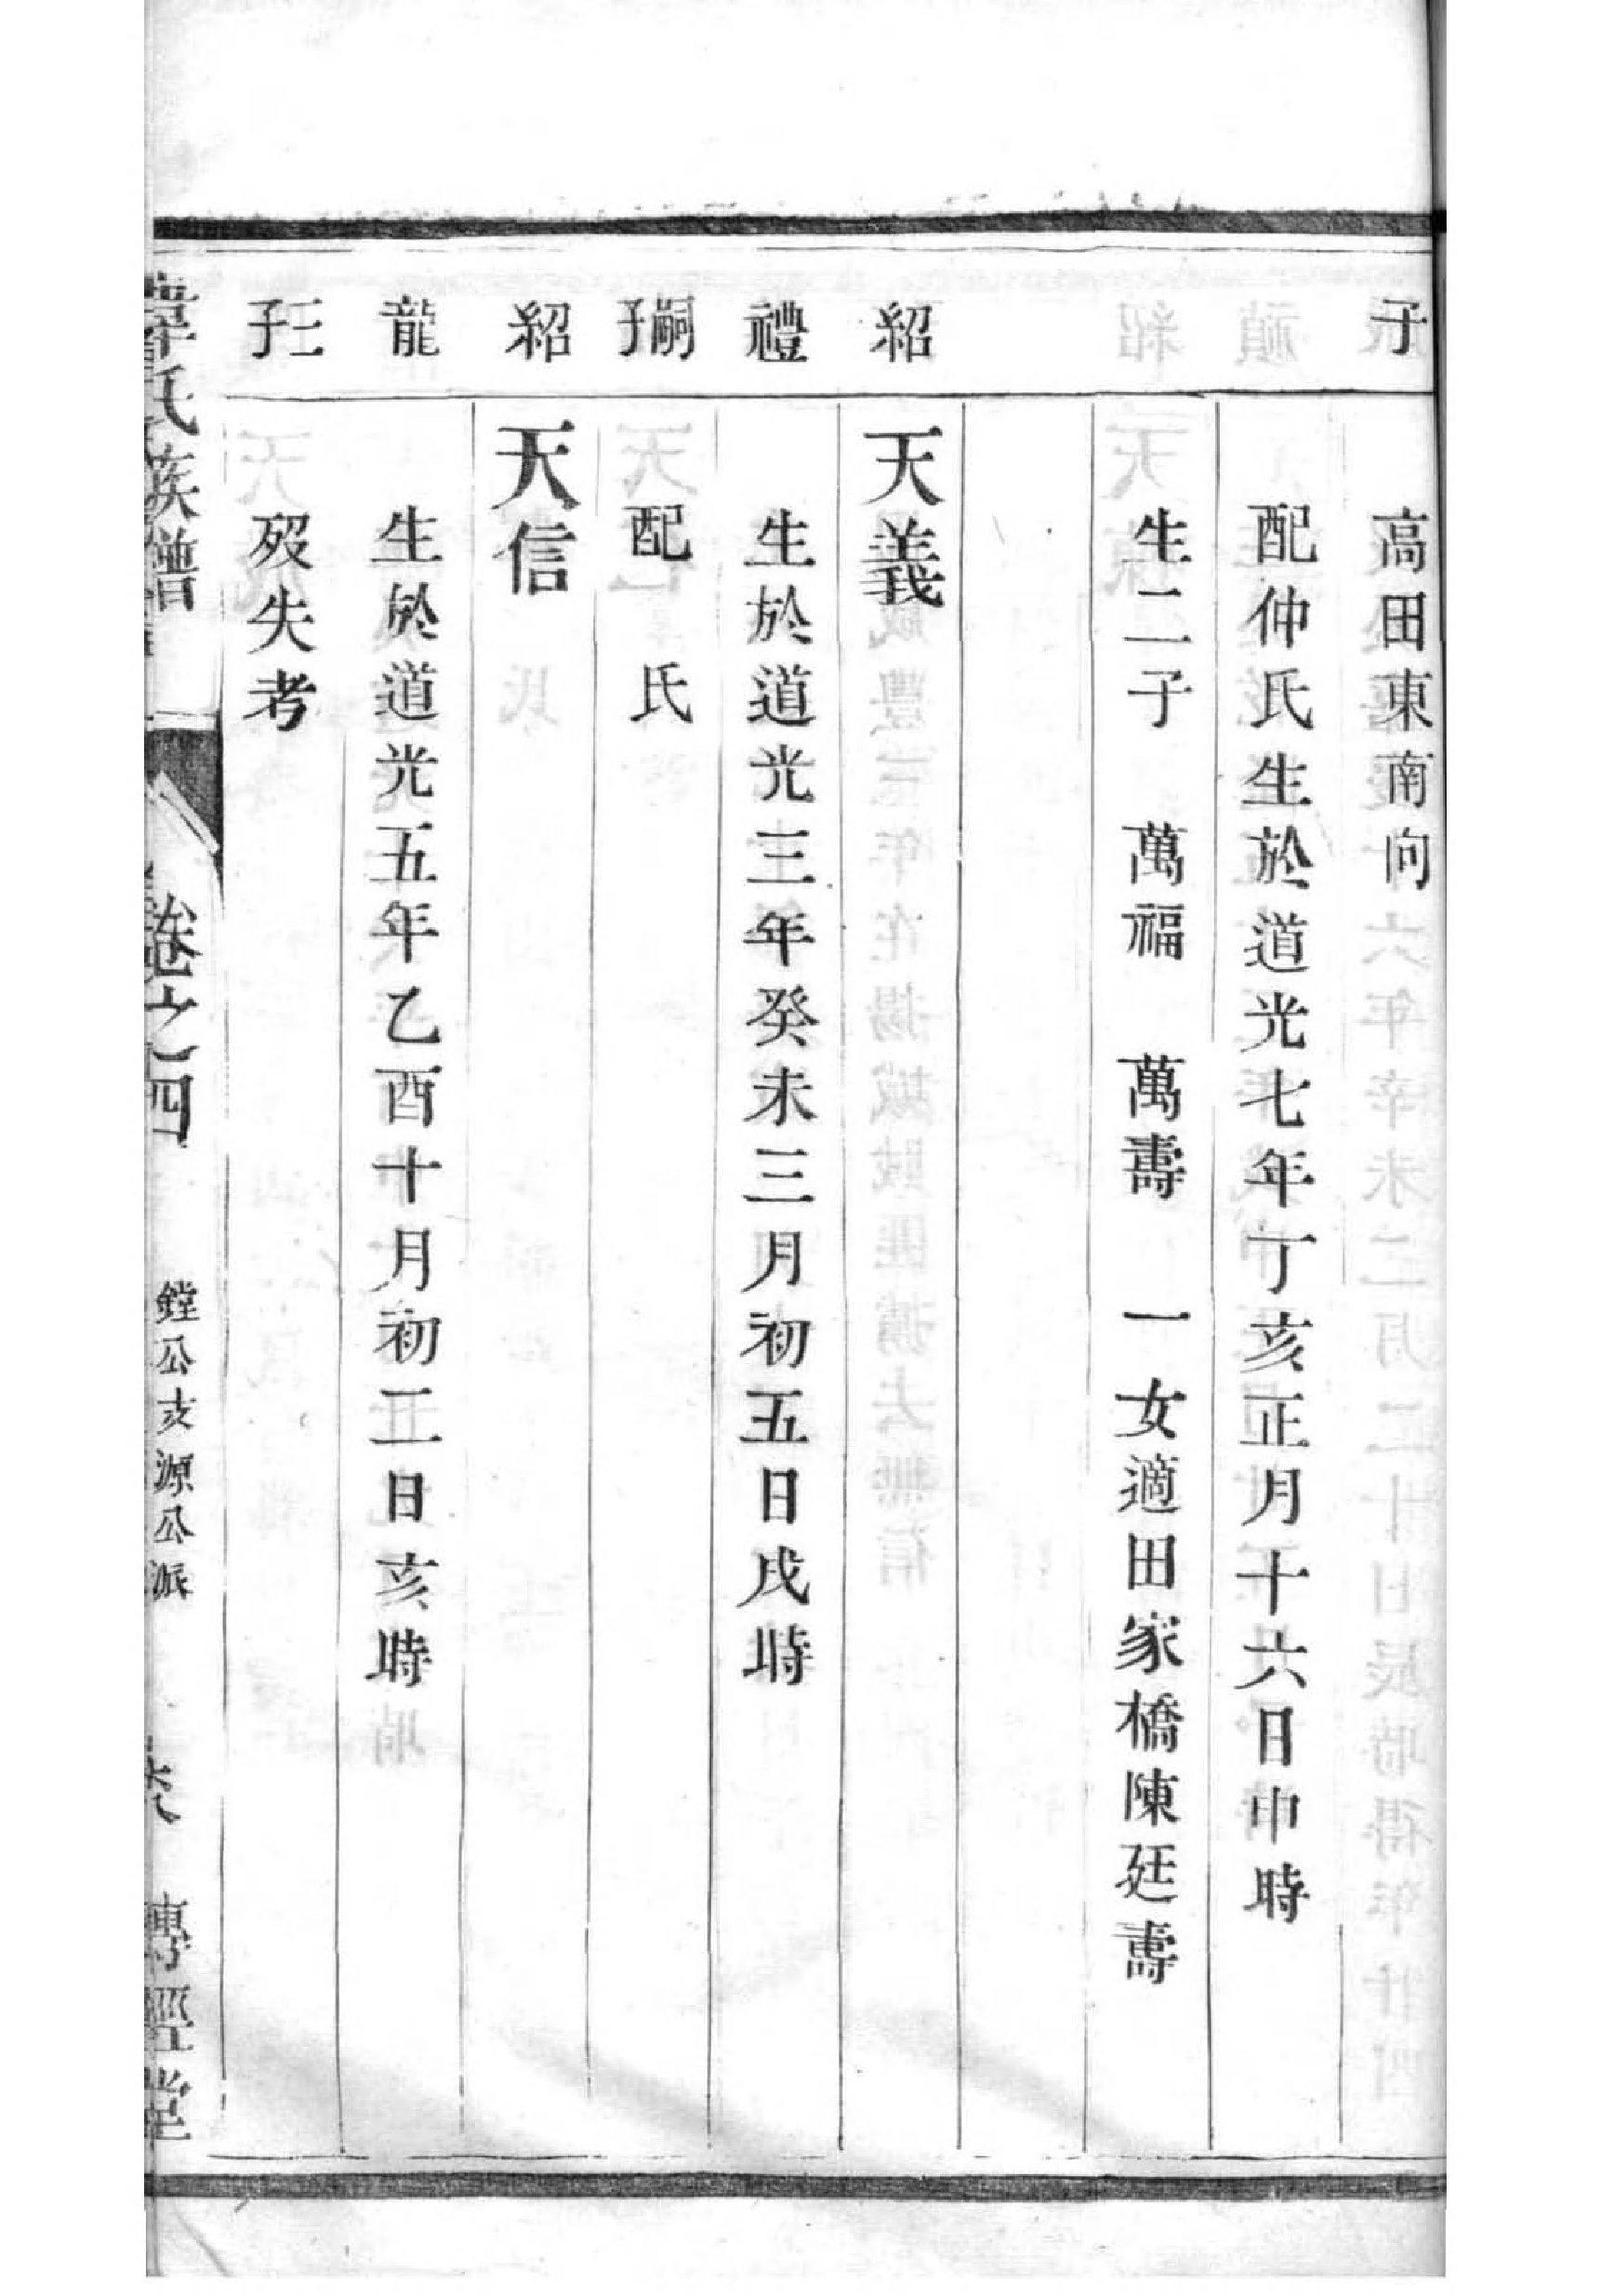 子
高田東南向
配仲氏生於道光七年丁亥正月十六日申時
生二子 萬福 萬壽 一女適田家橋陳廷壽
紹 天義
禮 生於道光三年癸未三月初五日戌時
嗣子 配 氏
紹 天信
龍 生於道光五年乙酉十月初五日亥時
三子 歿失考
韋氏族譜 卷之四 鏜公支源公派 傳經堂